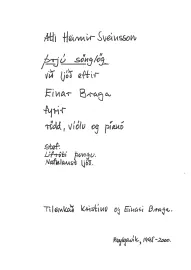 Atli Heimir Sveinsson
Þrjú sönglög
við ljóð eftir
Einar Braga
fyrir
rödd, víólu og píanó
Stef.
Nafnlaust ljóð.
Tileinkað Kristínu og Einari Braga.
Reykjavík, 1998-2000.